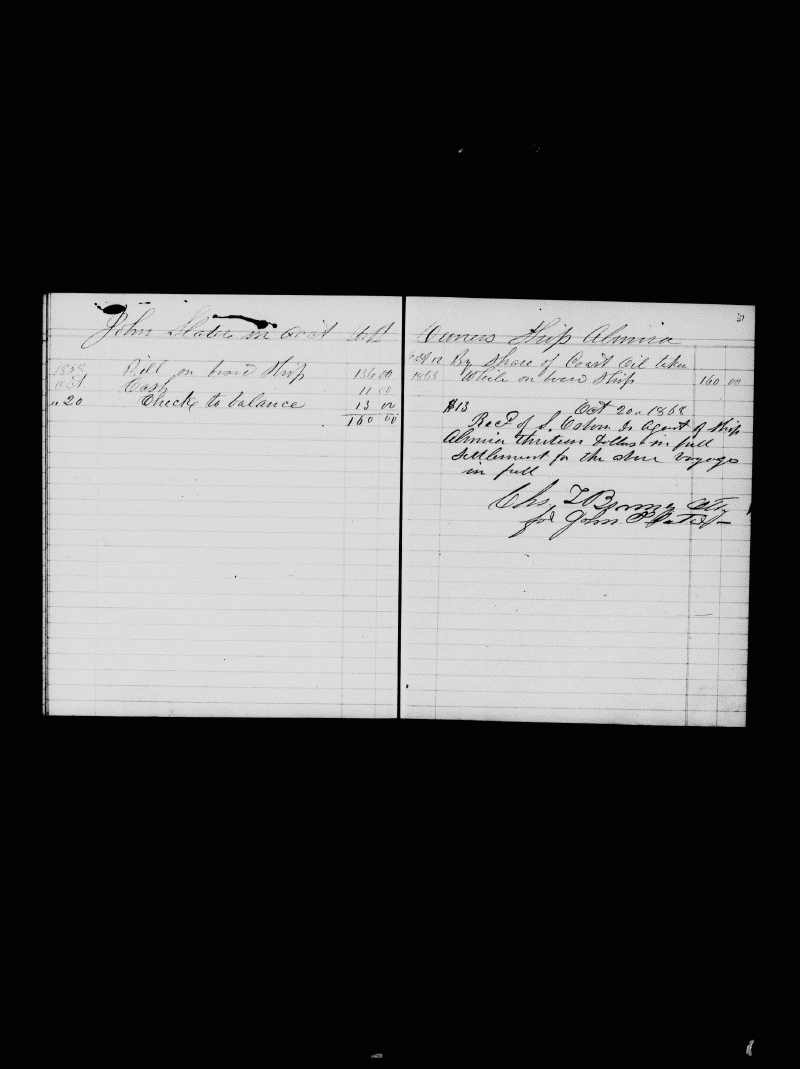 John Slater in acct with
1868 Bill on board Ship 136 00
Oct. Cash 11 00
" 20 Check to balance 13 00
160 00
Owners Ship Almira
Oct 12 By Share of Coast Oil taken
1868 While on board Ship 160 00
$13 Oct 20th 1868
Recd of S. Osborn Jr Agent of Ship
Almira thirteen Dollars in full
Settlement for the above voyage
in full
Chs. Atty
for John Slater